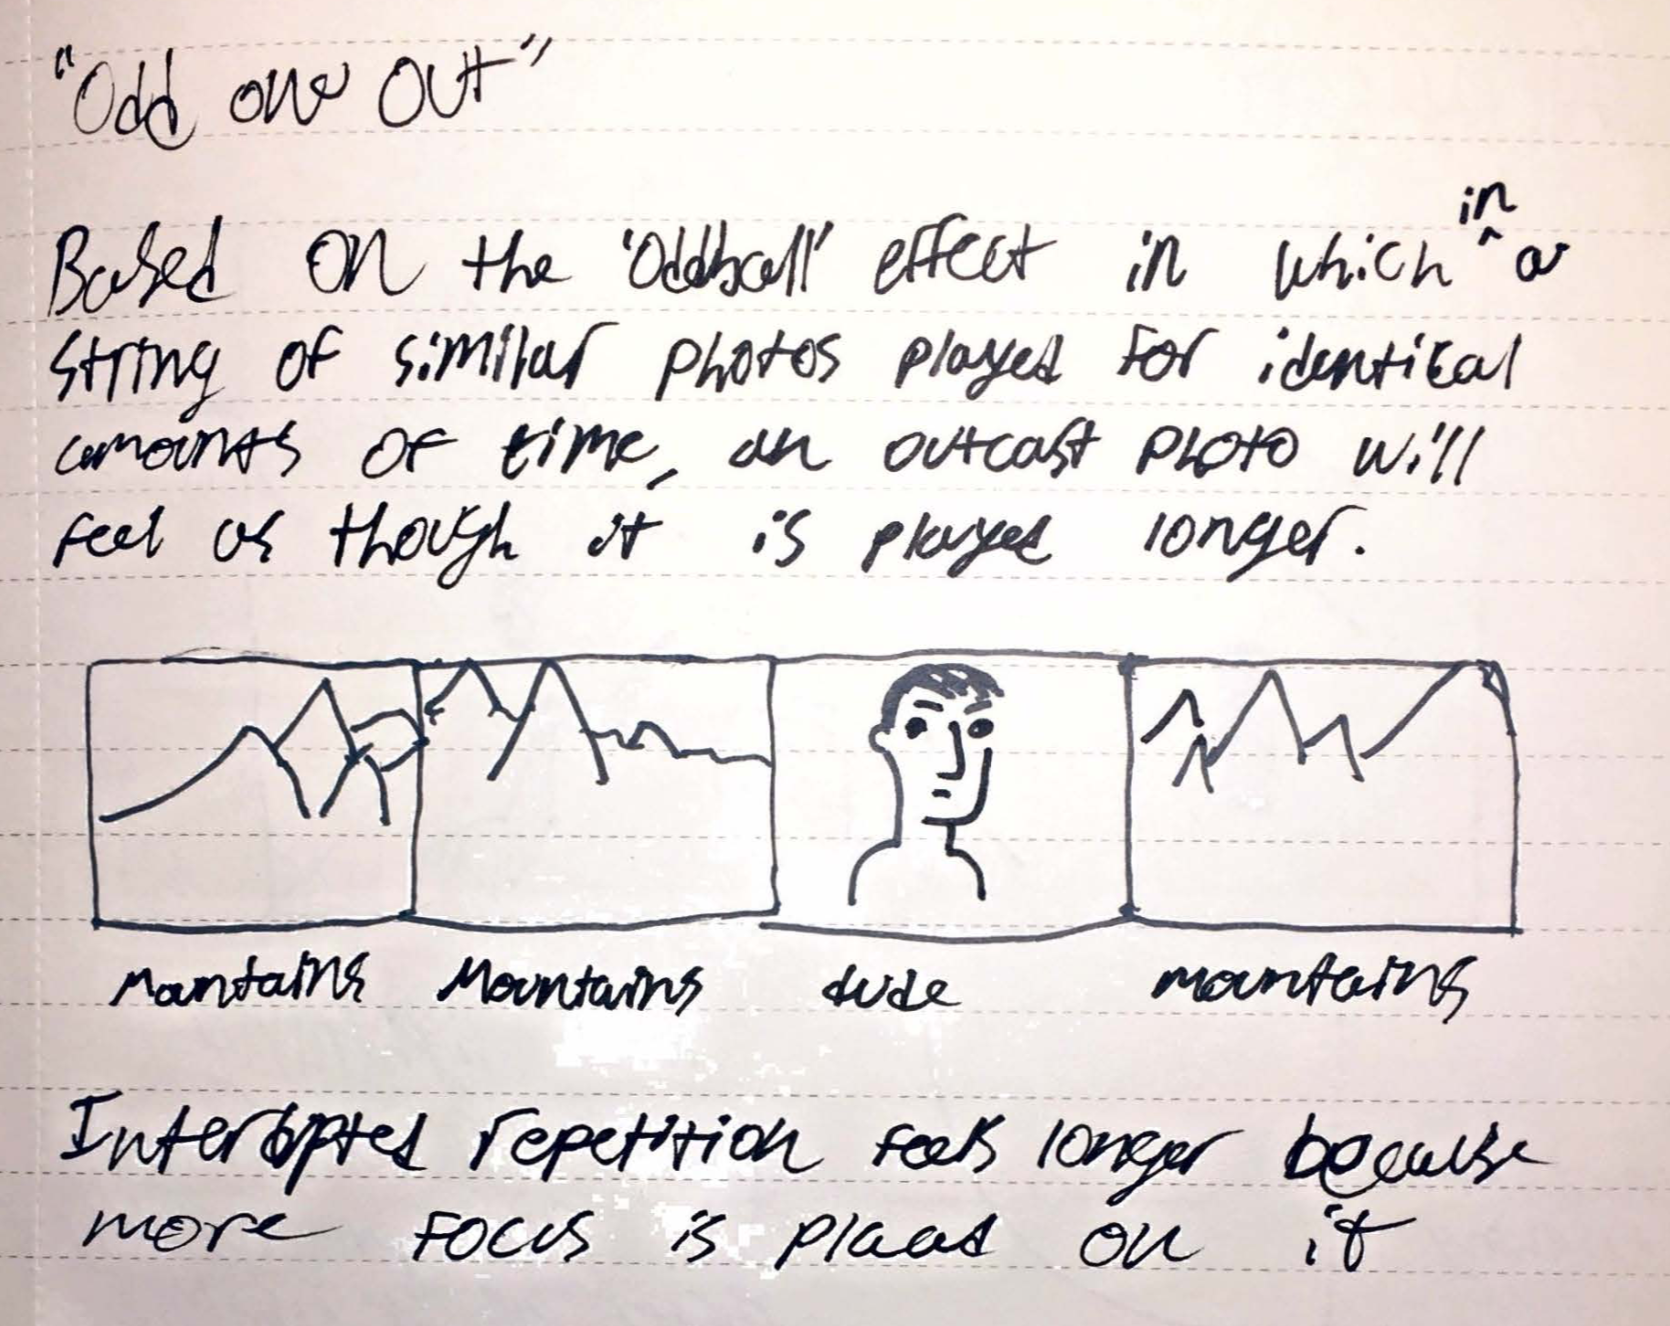 "Odd one out"
in
Based on the 'Oddball' effect in which ^ a
string of similar photos played for identical
amounts of time, an outcast photo will
feel as though it is played longer.
Mountains Mountains dude mountains
Interupted repetition feels longer because
more focus is placed on it